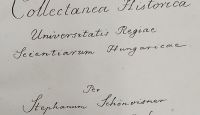 Collectanea Historica
Universitatis Regiae
Scientiarum Hungaricae
Per
Stephanum Schönvisner